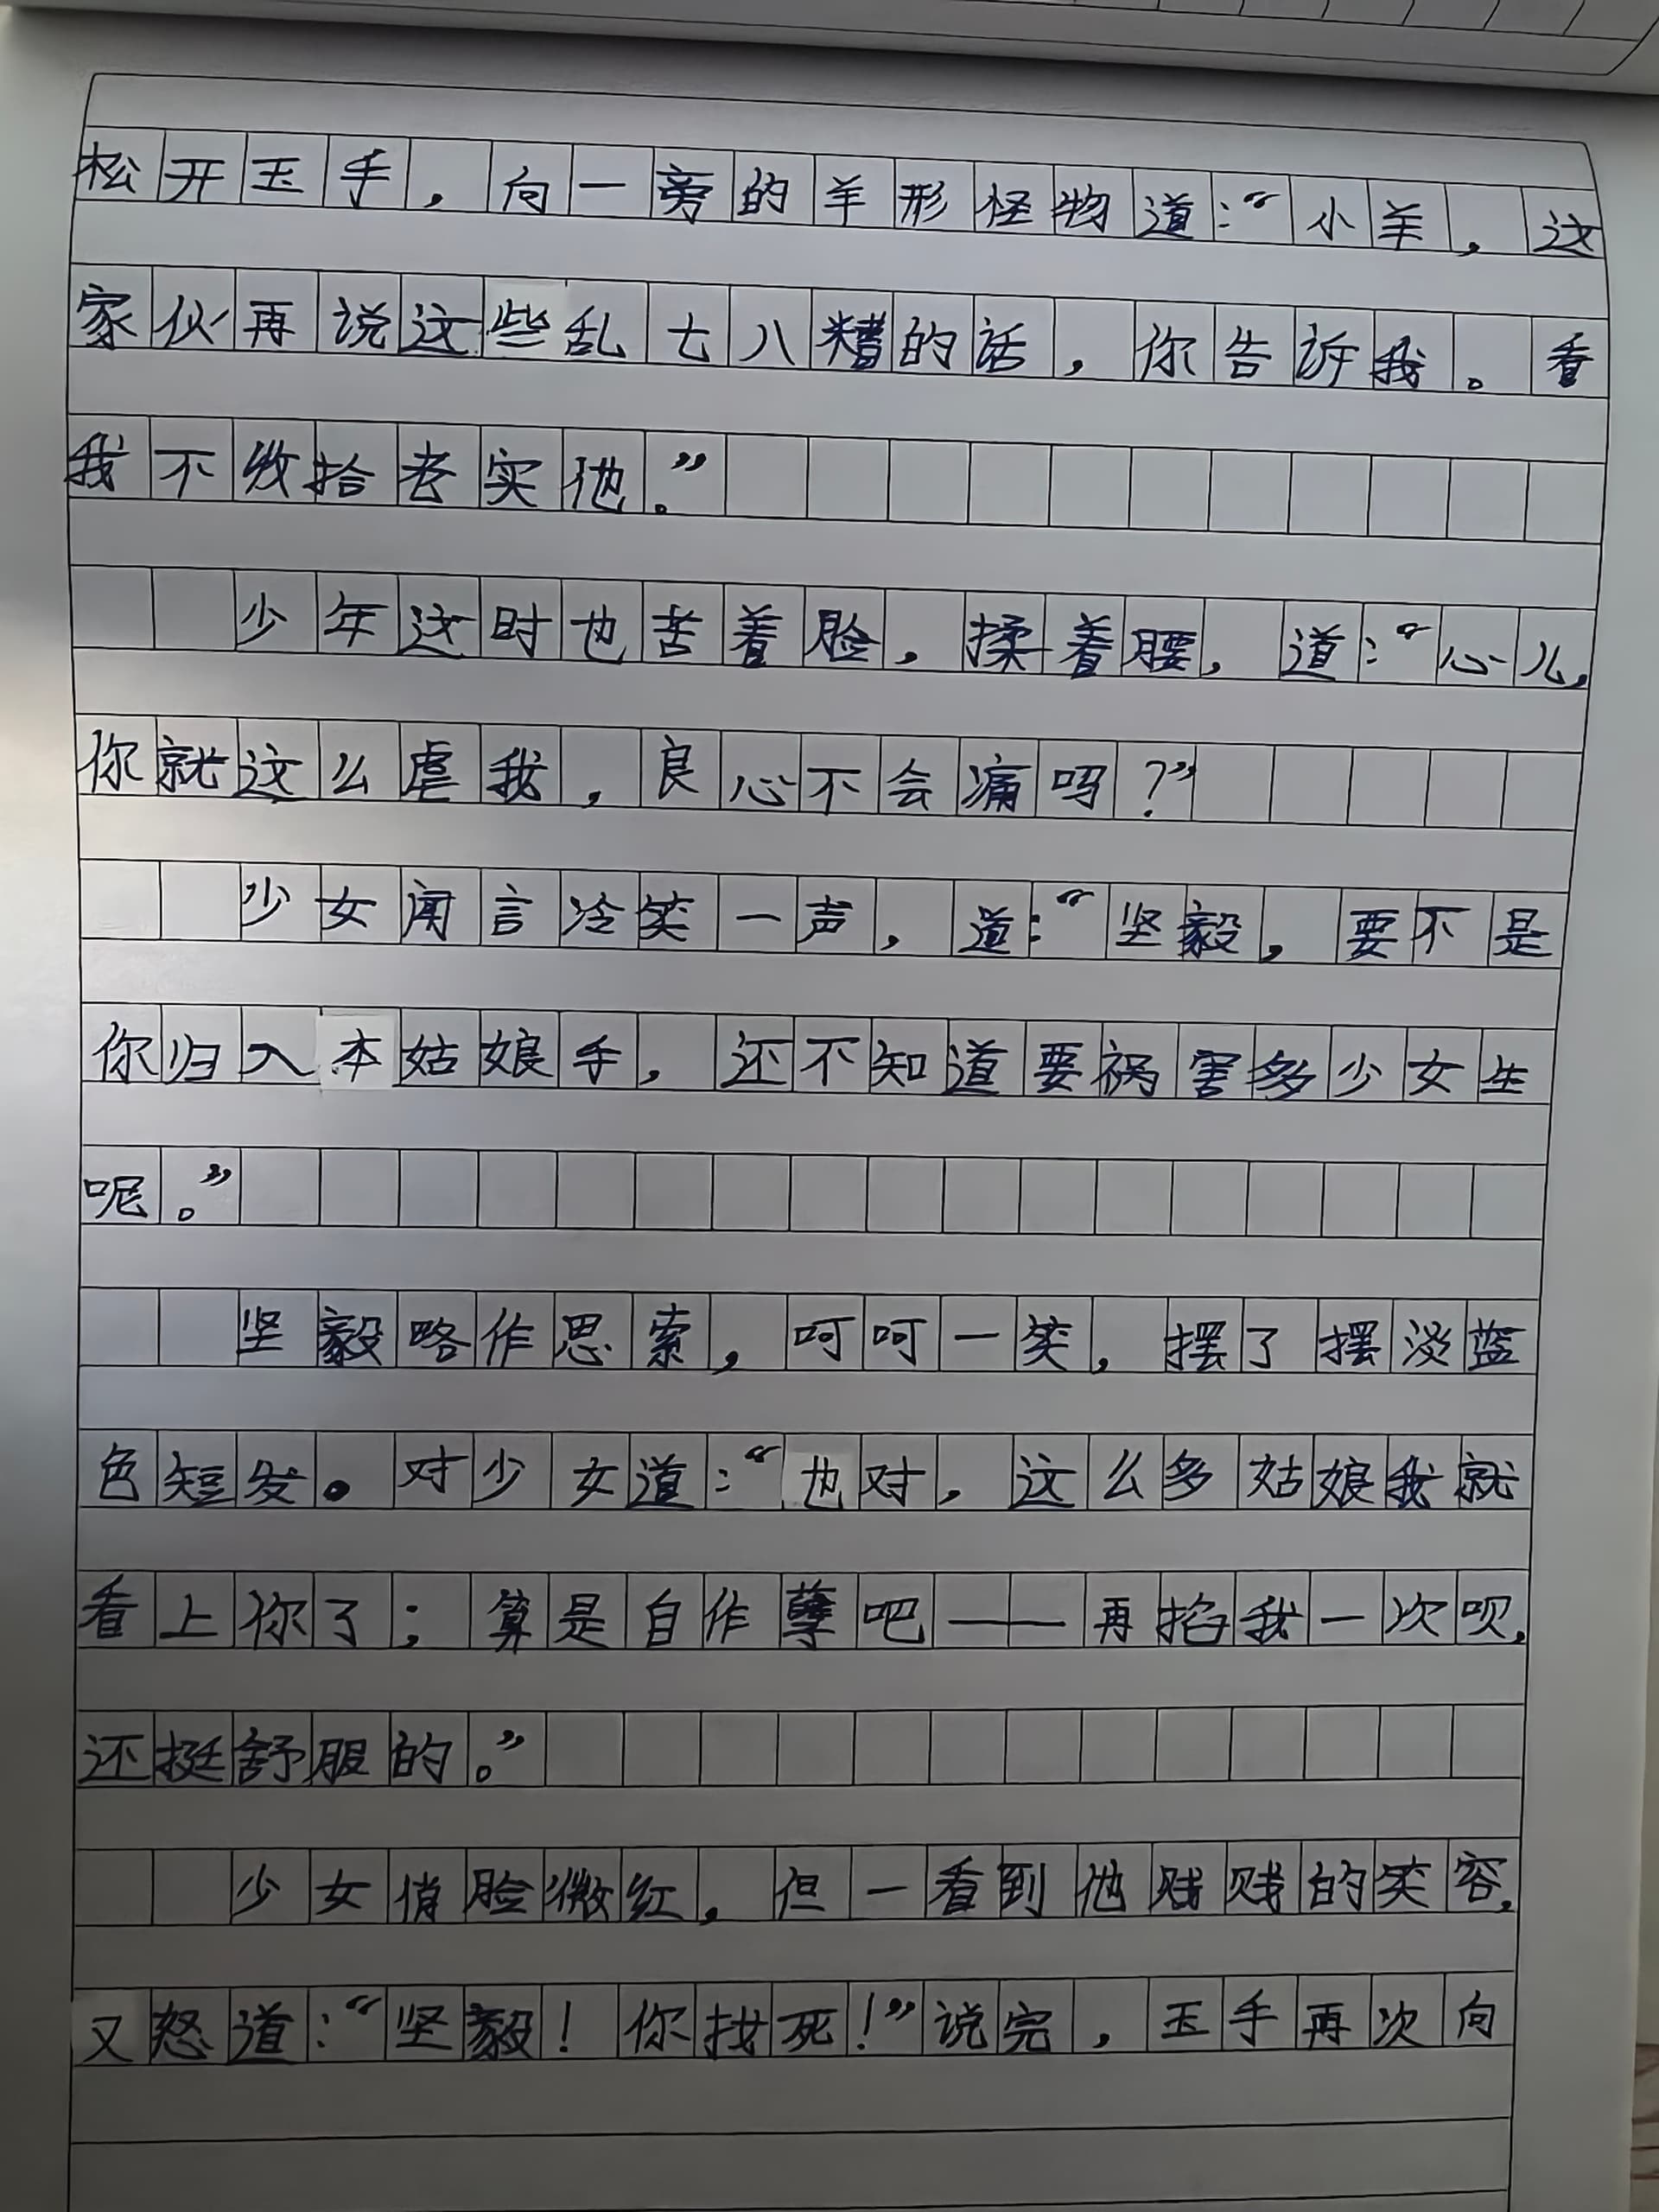 松开玉手，向一旁的羊形怪物道：“小羊，这
家伙再说这些乱七八糟的话，你告诉我。看
我不收拾老实他。”
少年这时也苦着脸，揉着腰，道：“心儿，
你就这么虐我，良心不会痛吗？”
少女闻言冷笑一声，道：“坚毅，要不是
你归入本姑娘手，还不知道要祸害多少女生
呢。”
坚毅略作思索，呵呵一笑，摆了摆淡蓝
色短发。对少女道：“也对，这么多姑娘我就
看上你了；算是自作孽吧——再掐我一次呗，
还挺舒服的。”
少女俏脸微红，但一看到他贱贱的笑容，
又怒道：“坚毅！你找死！”说完，玉手再次向